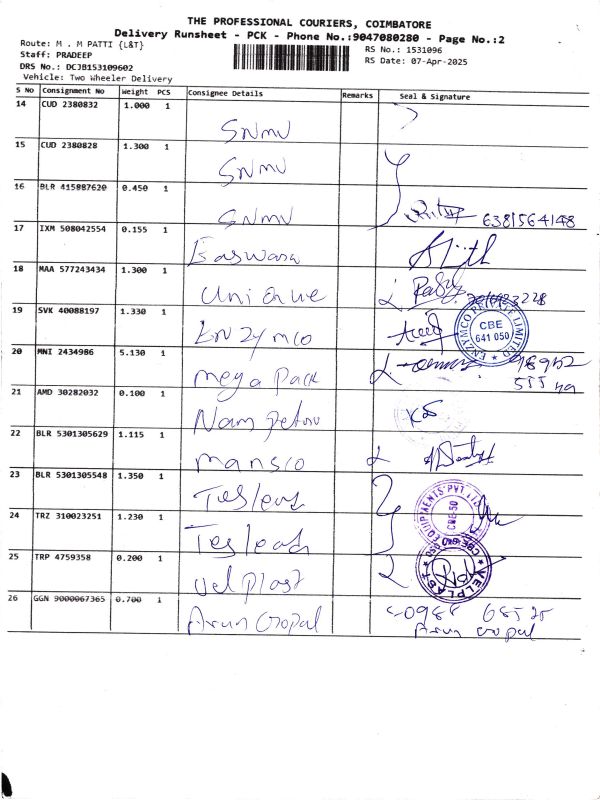 THE PROFESSIONAL COURIERS, COIMBATORE
Delivery Runsheet - PCK - Phone No.:9047080280 - Page No.:2
Route: M . M PATTI {L&T}
RS No.: 1531096
Staff: PRADEEP
RS Date: 07-Apr-2025
DRS No.: DCJB153109602
Vehicle: Two Wheeler Delivery
S No Consignment No Weight PCS Consignee Details Remarks Seal & Signature
14 CUD 2380832 1.000 1
SNMV
15 CUD 2380828 1.300 1
SNMV
16 BLR 415887620 0.450 1
SNMV 6381564148
17 IXM 508042554 0.155 1
Easwara
18 MAA 577243434 1.300 1
Unique
19 SVK 40088197 1.330 1
Enzymco
ENZYMCO PRIVATE LIMITED
CBE
641 050
20 MNI 2434986 5.130 1
Mega Pack
21 AMD 30282032 0.100 1
22 BLR 5301305629 1.115 1
Mansco
23 BLR 5301305548 1.350 1
24 TRZ 310023251 1.230 1
EQUIPMENTS PVT LTD
CBE-50
25 TRP 4759358 0.200 1
Velplast
26 GGN 9000067365 0.700 1
Arun Gopal
Arun Gopal